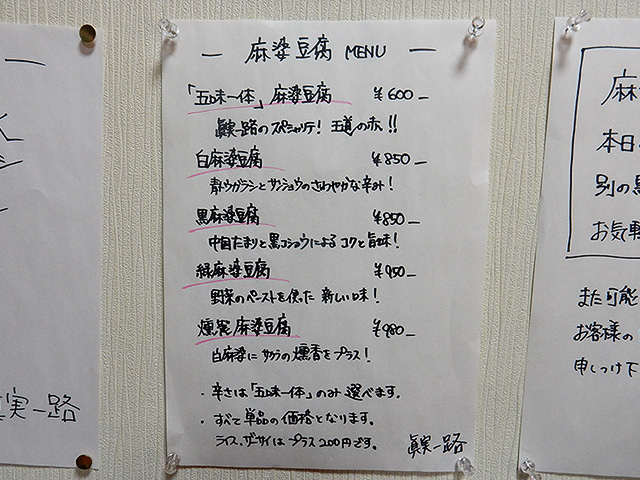 — 麻婆豆腐 MENU —
「五味一体」麻婆豆腐 ¥600—
眞実一路のスペシャリテ! 王道の赤!!
白麻婆豆腐 ¥850—
青トウガラシとサンショウのさわやかな辛み!
黒麻婆豆腐 ¥850—
中国たまりと黒コショウによる コクと旨味!
緑麻婆豆腐 ¥950—
野菜のペーストを使った 新しい味!
燻製麻婆豆腐 ¥980—
白麻婆に サクラの燻香をプラス!
・辛さは「五味一体」のみ 選べます。
・すべて単品の価格となります。
ライス、ザーサイは プラス200円です。
眞実一路
実一路
麻
本日
別の黒
お気軽
また可能
お客様の
申しつけ下